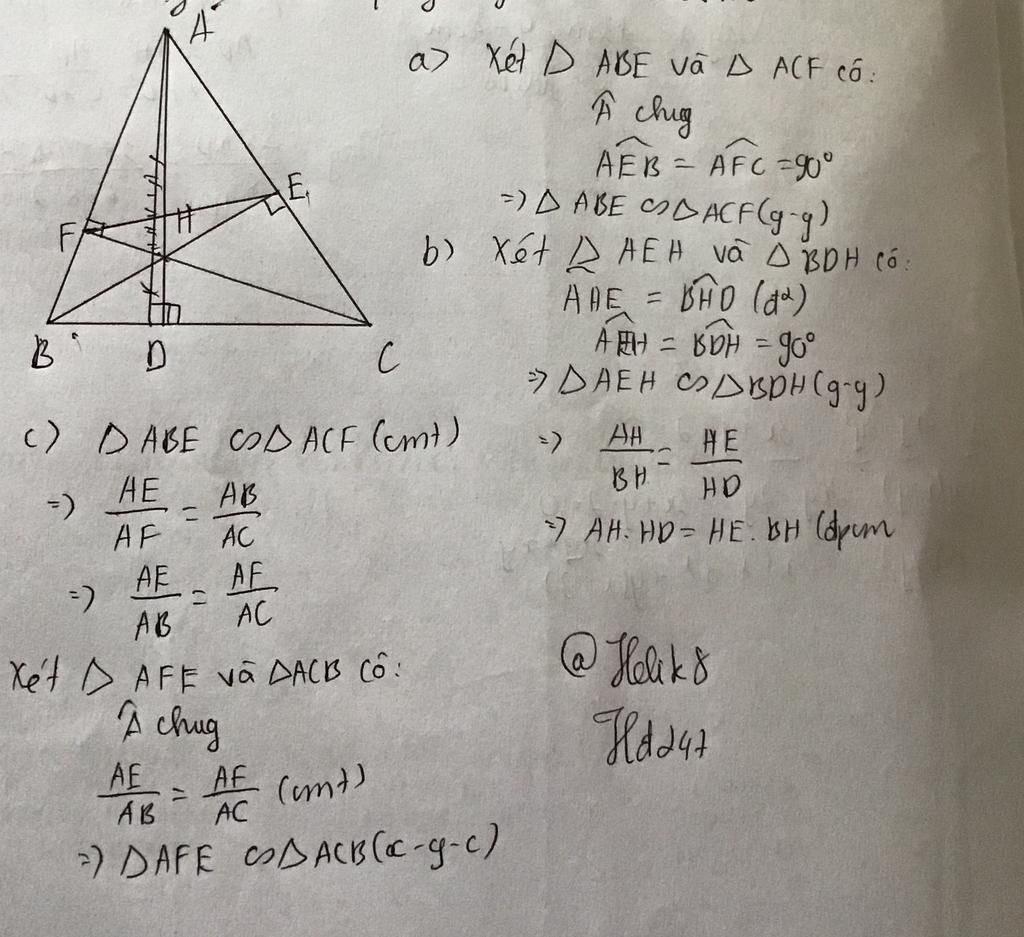 A
F
E
H
B
D
C
a) Xét Δ ABE và Δ ACF có:
Â chug
AEB = AFC = 90°
=> Δ ABE ∽ Δ ACF (g-g)
b) Xét Δ AEH và Δ BDH có:
AHE = BHD (đ²)
AEH = BDH = 90°
=> Δ AEH ∽ Δ BDH (g-g)
=> AH/BH = HE/HD
=> AH. HD = HE. BH (đpcm
c) Δ ABE ∽ Δ ACF (cmt)
=> AE/AF = AB/AC
=> AE/AB = AF/AC
Xét Δ AFE và ΔACB có:
Â chug
AE/AB = AF/AC (cmt)
=> ΔAFE ∽ ΔACB (c-g-c)
@
Hd247